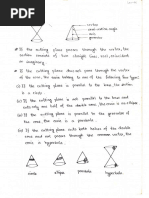 vertex
semi-vertical angle
axis
generator
* If the cutting plane passes through the vertex, the
section consists of two straight lines, real, coincident
or imaginary
* If the cutting plane does not pass through the
vertex, the conic belong to one of the following four types:
(i) If the cutting plane is parallel to the base, the section
is a circle
(ii) If the cutting plane is not parallel to the base and
cuts only one half of the double cone, the conic is an ellipse
(iii) If the cutting plane is parallel to the generator of
the cone, the conic is a parabola
(iv) If the cutting plane cuts both halves of the double
cone and not passes through the vertex, the conic is
a hyperbola.
circle
ellipse
parabola
hyperbola